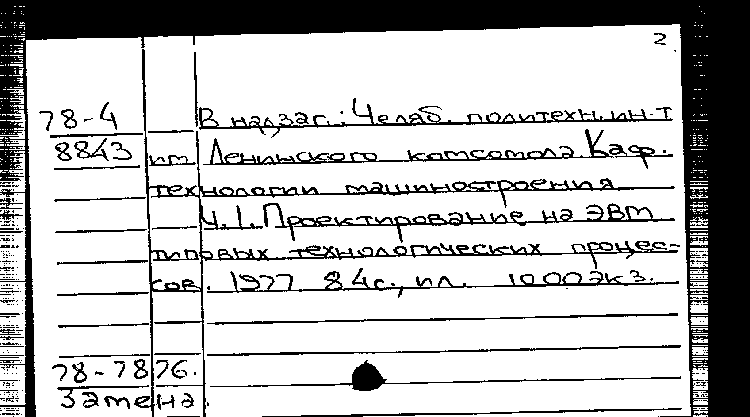 2
78-4 В надзаг.: Челяб. политехн. ин-т
8843 им Ленинского комсомола. Каф.
технологии машиностроения
Ч. 1. Проектирование на ЭВМ
типовых технологических процес-
сов. 1977 84с., ил. 1000экз.
78-7876.
Замена.